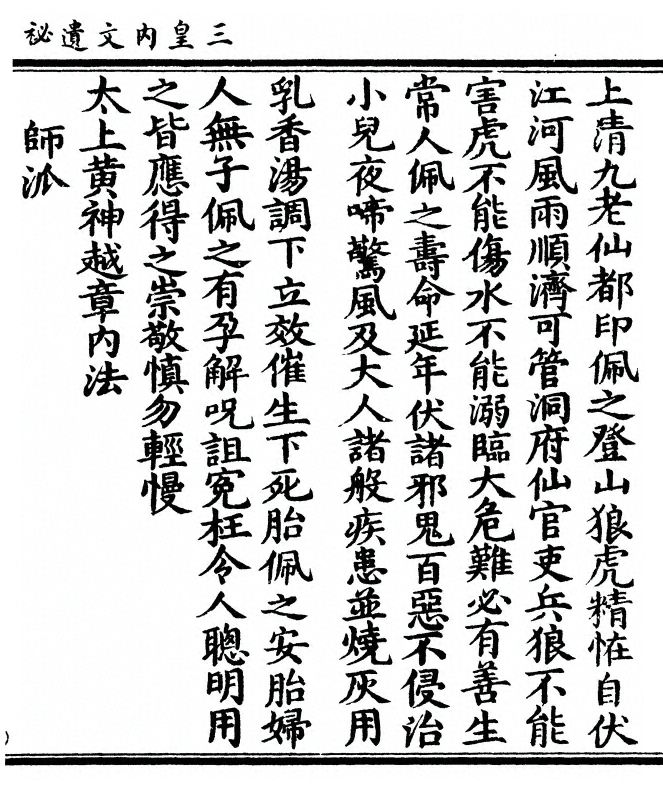 三皇内文遺祕
上清九老仙都印佩之登山狼虎精恠自伏
江河風雨順濟可管洞府仙官吏兵狼不能
害虎不能傷水不能溺臨大危難必有善生
常人佩之壽命延年伏諸邪鬼百惡不侵治
小兒夜啼驚風及大人諸般疾患並燒灰用
乳香湯調下立效催生下死胎佩之安胎婦
人無子佩之有孕解呪詛寃枉令人聰明用
之皆應得之崇敬慎勿輕慢
太上黄神越章内法
師派